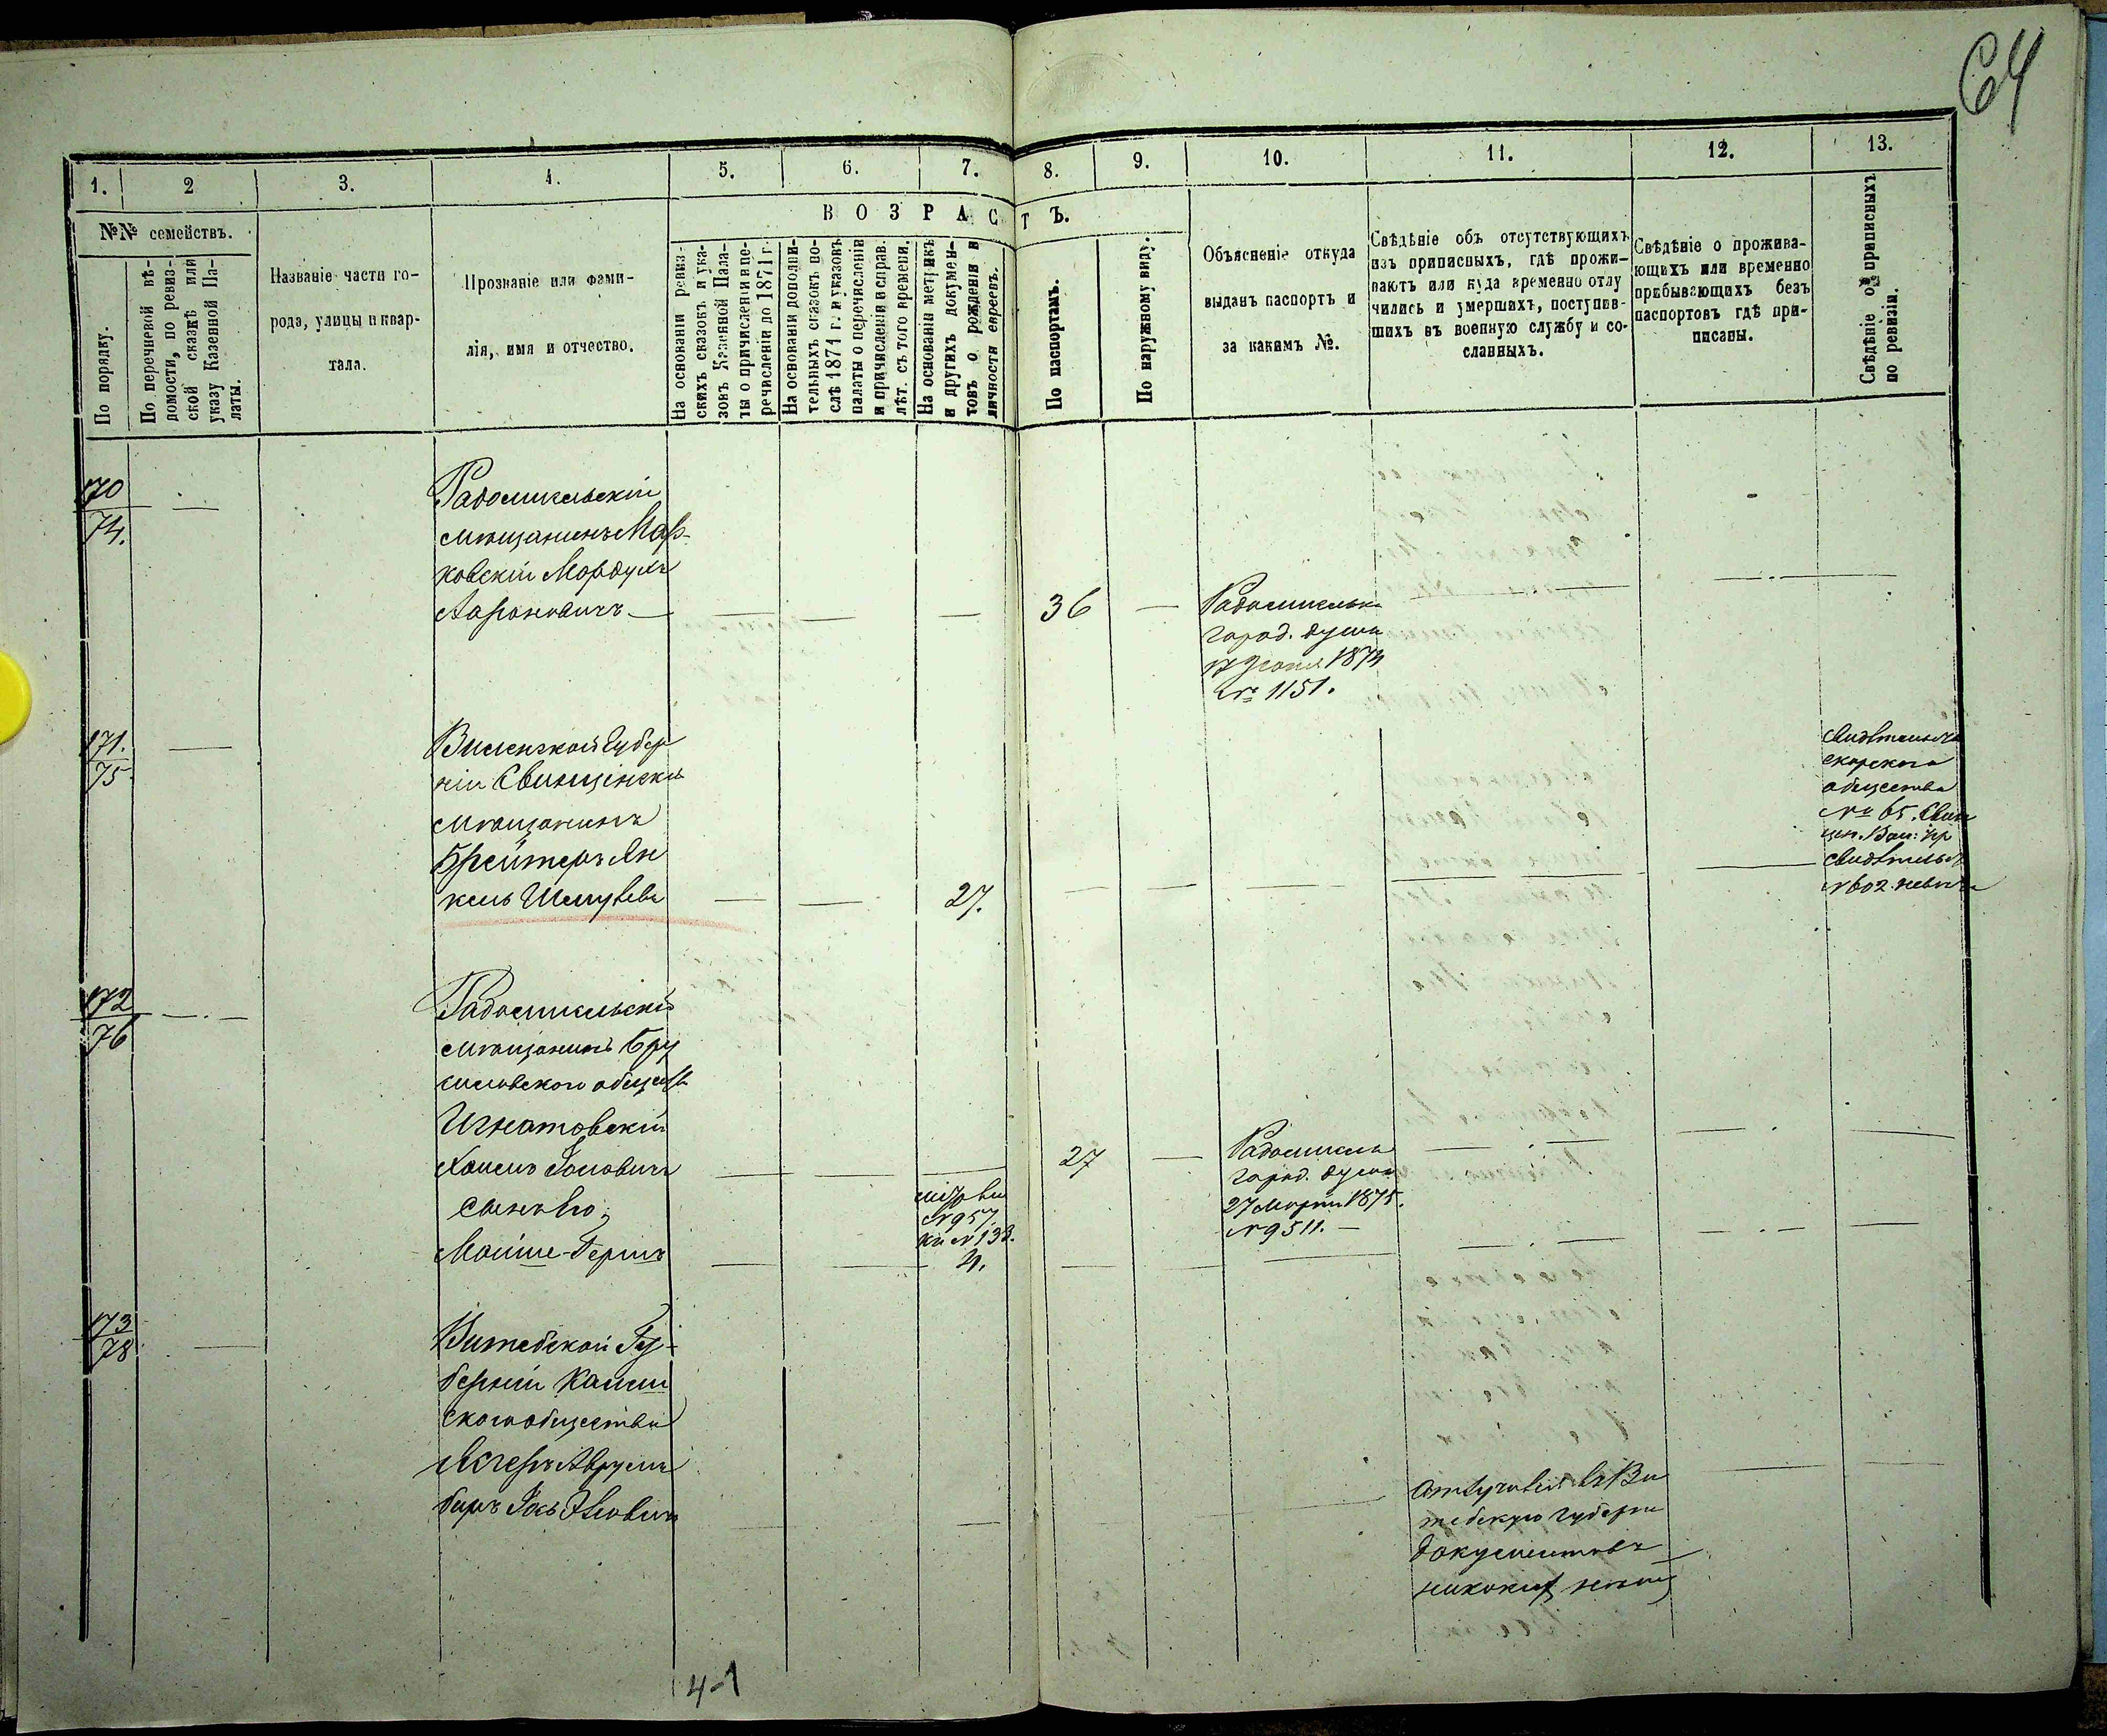 64
1.
2
3.
4.
5.
6.
7.
8.
9.
10.
11.
12.
13.
№№ семействъ.
По порядку.
По перечневой вѣ-
домости, по ревиз-
ской сказкѣ или
указу Казенной Па-
латы.
Названіе части го-
рода, улицы и квар-
тала.
Прозваніе или фами-
лія, имя и отчество.
ВОЗРАСТЪ.
На основаніи ревиз-
скихъ сказокъ и ука-
зовъ Казенной Пала-
ты о причисленіи и пе-
речисленіи до 1871 г.
На основаніи дополни-
тельныхъ сказокъ по-
слѣ 1871 г. и указовъ
палаты о перечисленіи
и причисленіи и справ.
лѣт. съ того времени.
На основаніи метрикъ
и другихъ докумен-
товъ о рожденіи и
личности евреевъ.
По паспортамъ.
По наружному виду.
Объясненіе откуда
выданъ паспортъ и
за какимъ №.
Свѣдѣніе объ отсутствующихъ
изъ приписныхъ, гдѣ прожи-
ваютъ или куда временно отлу
чились и умершихъ, поступив-
шихъ въ военную службу и со-
сланныхъ.
Свѣдѣніе о прожива-
ющихъ или временно
пребывающихъ безъ
паспортовъ гдѣ при-
писаны.
Свѣдѣніе о приписныхъ
по ревизіи.
170
74.
Радомысльскій
мѣщанинъ Мар-
ковскій Мордухъ
Ароновичъ
36
Радомысльск
город. дума
17 1874
№ 1151.
171.
75.
Виленской Губер
ніи Свинцянскій
мѣщанинъ
Брейтеръ Ян
кель Шмулевъ
27.
общества
№ 65.
№ 602
172
76
Радомысльскій
мѣщанинъ Бру
силовского общест
Игнатовскій
Хаимъ Іосовичъ
27
Радомысль
город. дума
27 Марта 1875.
№ 9511.
сынъ его,
Мойше-Гершъ
№ 957.
кн № 138.
4.
173
78
Витебской Гу-
берніи
ского общества
Аврумъ
въ Ви
тебскую губерн
документовъ
никакихъ
4-1